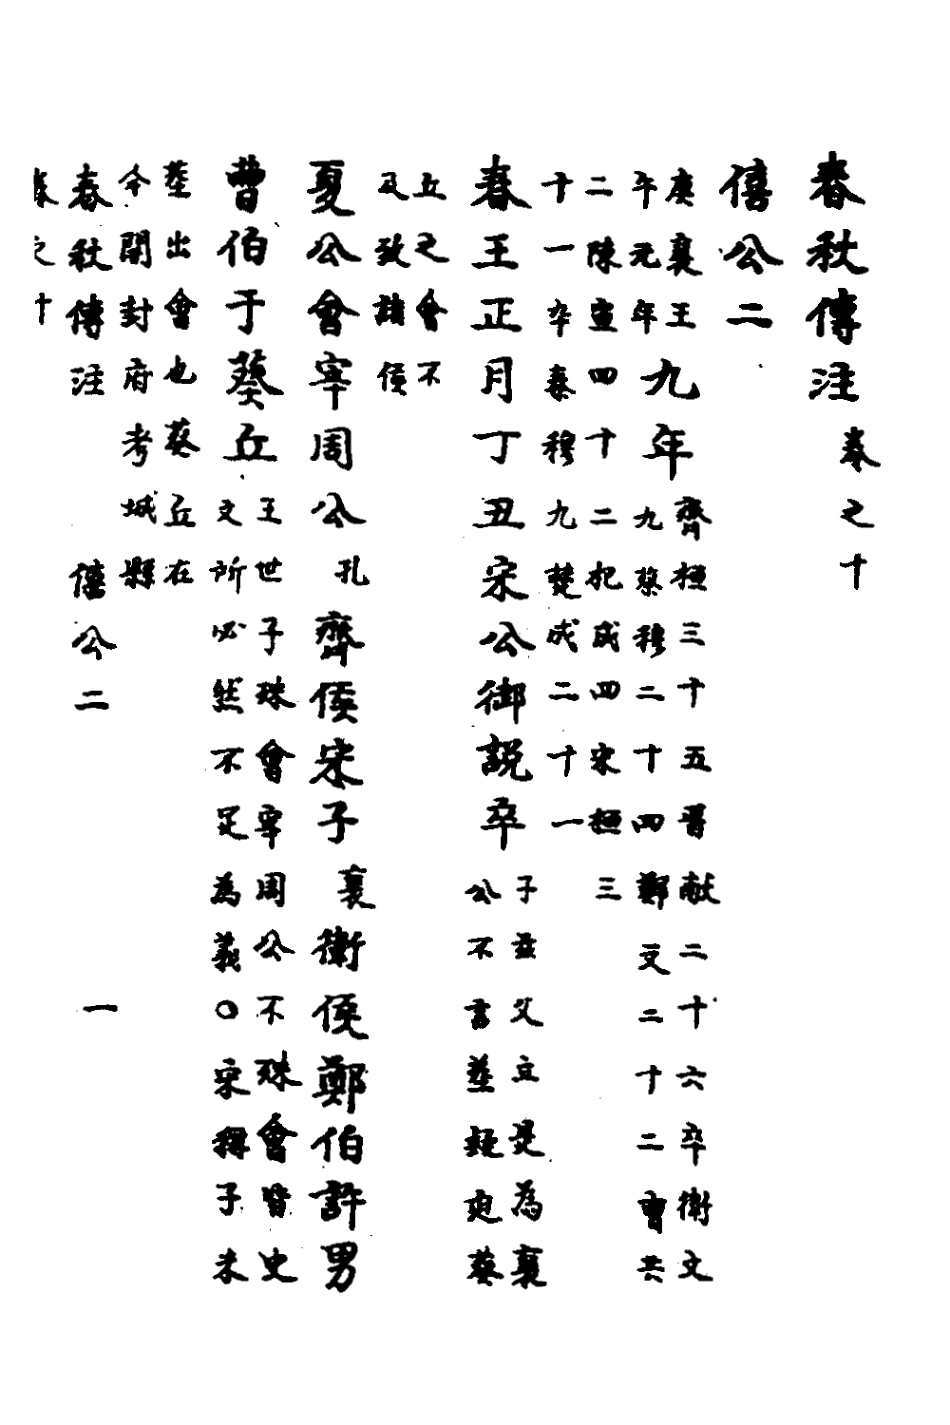 春秋傳注 卷之十
僖公二
庚襄王
午元年九年
齊桓三十五晉獻二十六卒衛文
九蔡穆二十四鄭文二十二曹共
二陳宣四十二杞成四宋桓三
十一卒秦穆九楚成二十一
春王正月丁丑宋公御説卒
子茲父立是為襄
公不書葬疑迫葵
丘之會不
及致諸侯
夏公會宰周公孔齊侯宋子襄衛侯鄭伯許男
曹伯于葵丘
王世子殊會宰周公不殊會皆史
文所必然不足為義○宋稱子未
葬出會也葵丘在
今開封府考城縣
春秋傳注 僖公二 一
卷之十